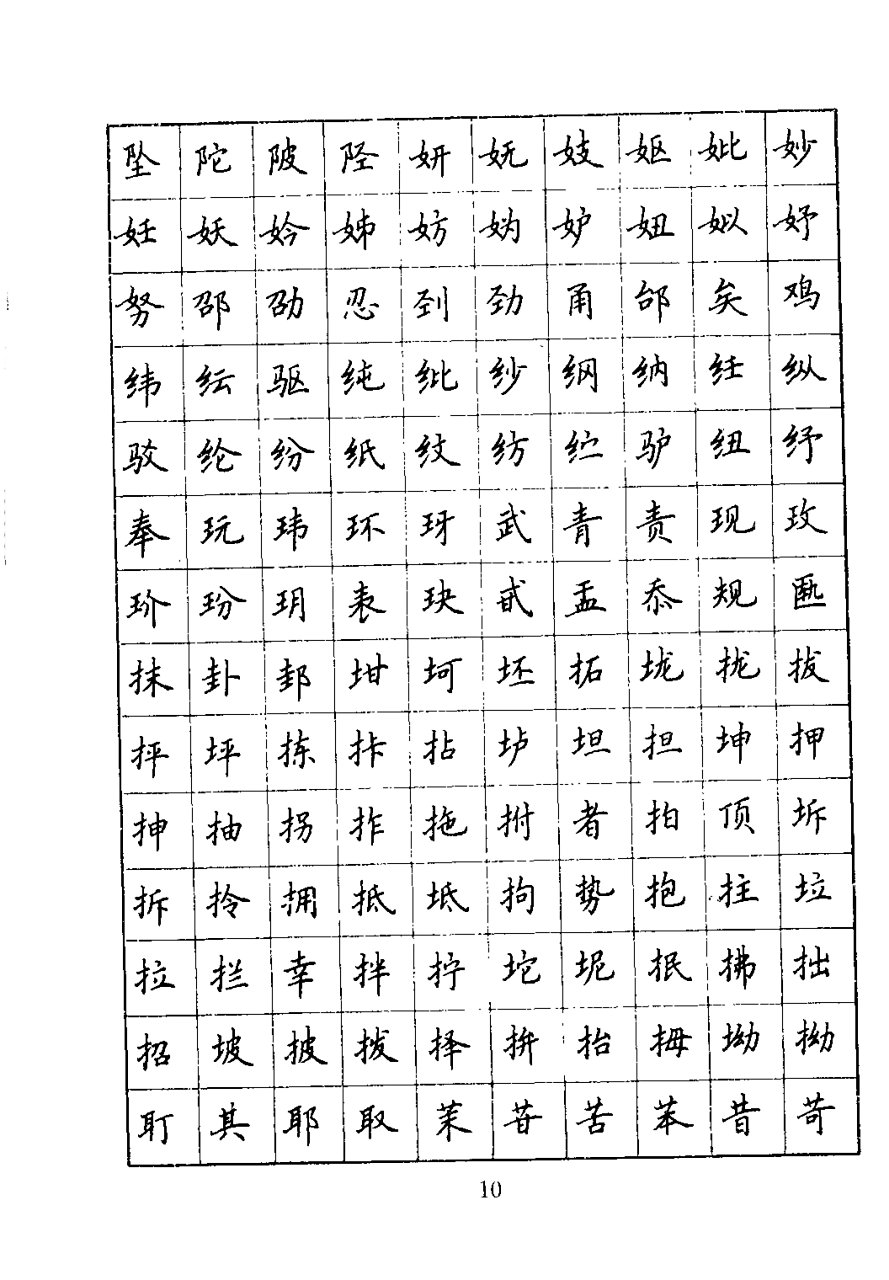 坠 陀 陂 陉 妍 妩 妓 妪 妣 妙
妊 妖 妗 姊 妨 妫 妒 妞 姒 妤
努 邵 劭 忍 刭 劲 甬 邰 矣 鸡
纬 纭 驱 纯 纰 纱 纲 纳 纴 纵
驳 纶 纷 纸 纹 纺 纻 驴 纽 纾
奉 玩 玮 环 玡 武 青 责 现 玫
玠 玢 玥 表 玦 甙 盂 忝 规 匦
抹 卦 邽 坩 坷 坯 拓 垅 拢 拔
抨 坪 拣 拤 拈 垆 坦 担 坤 押
抻 抽 拐 拃 拖 拊 者 拍 顶 坼
拆 拎 拥 抵 坻 拘 势 抱 拄 垃
拉 拦 幸 拌 拧 坨 坭 抿 拂 拙
招 坡 披 拨 择 拚 抬 拇 坳 拗
耵 其 耶 取 茉 苷 苦 苯 昔 苛
10